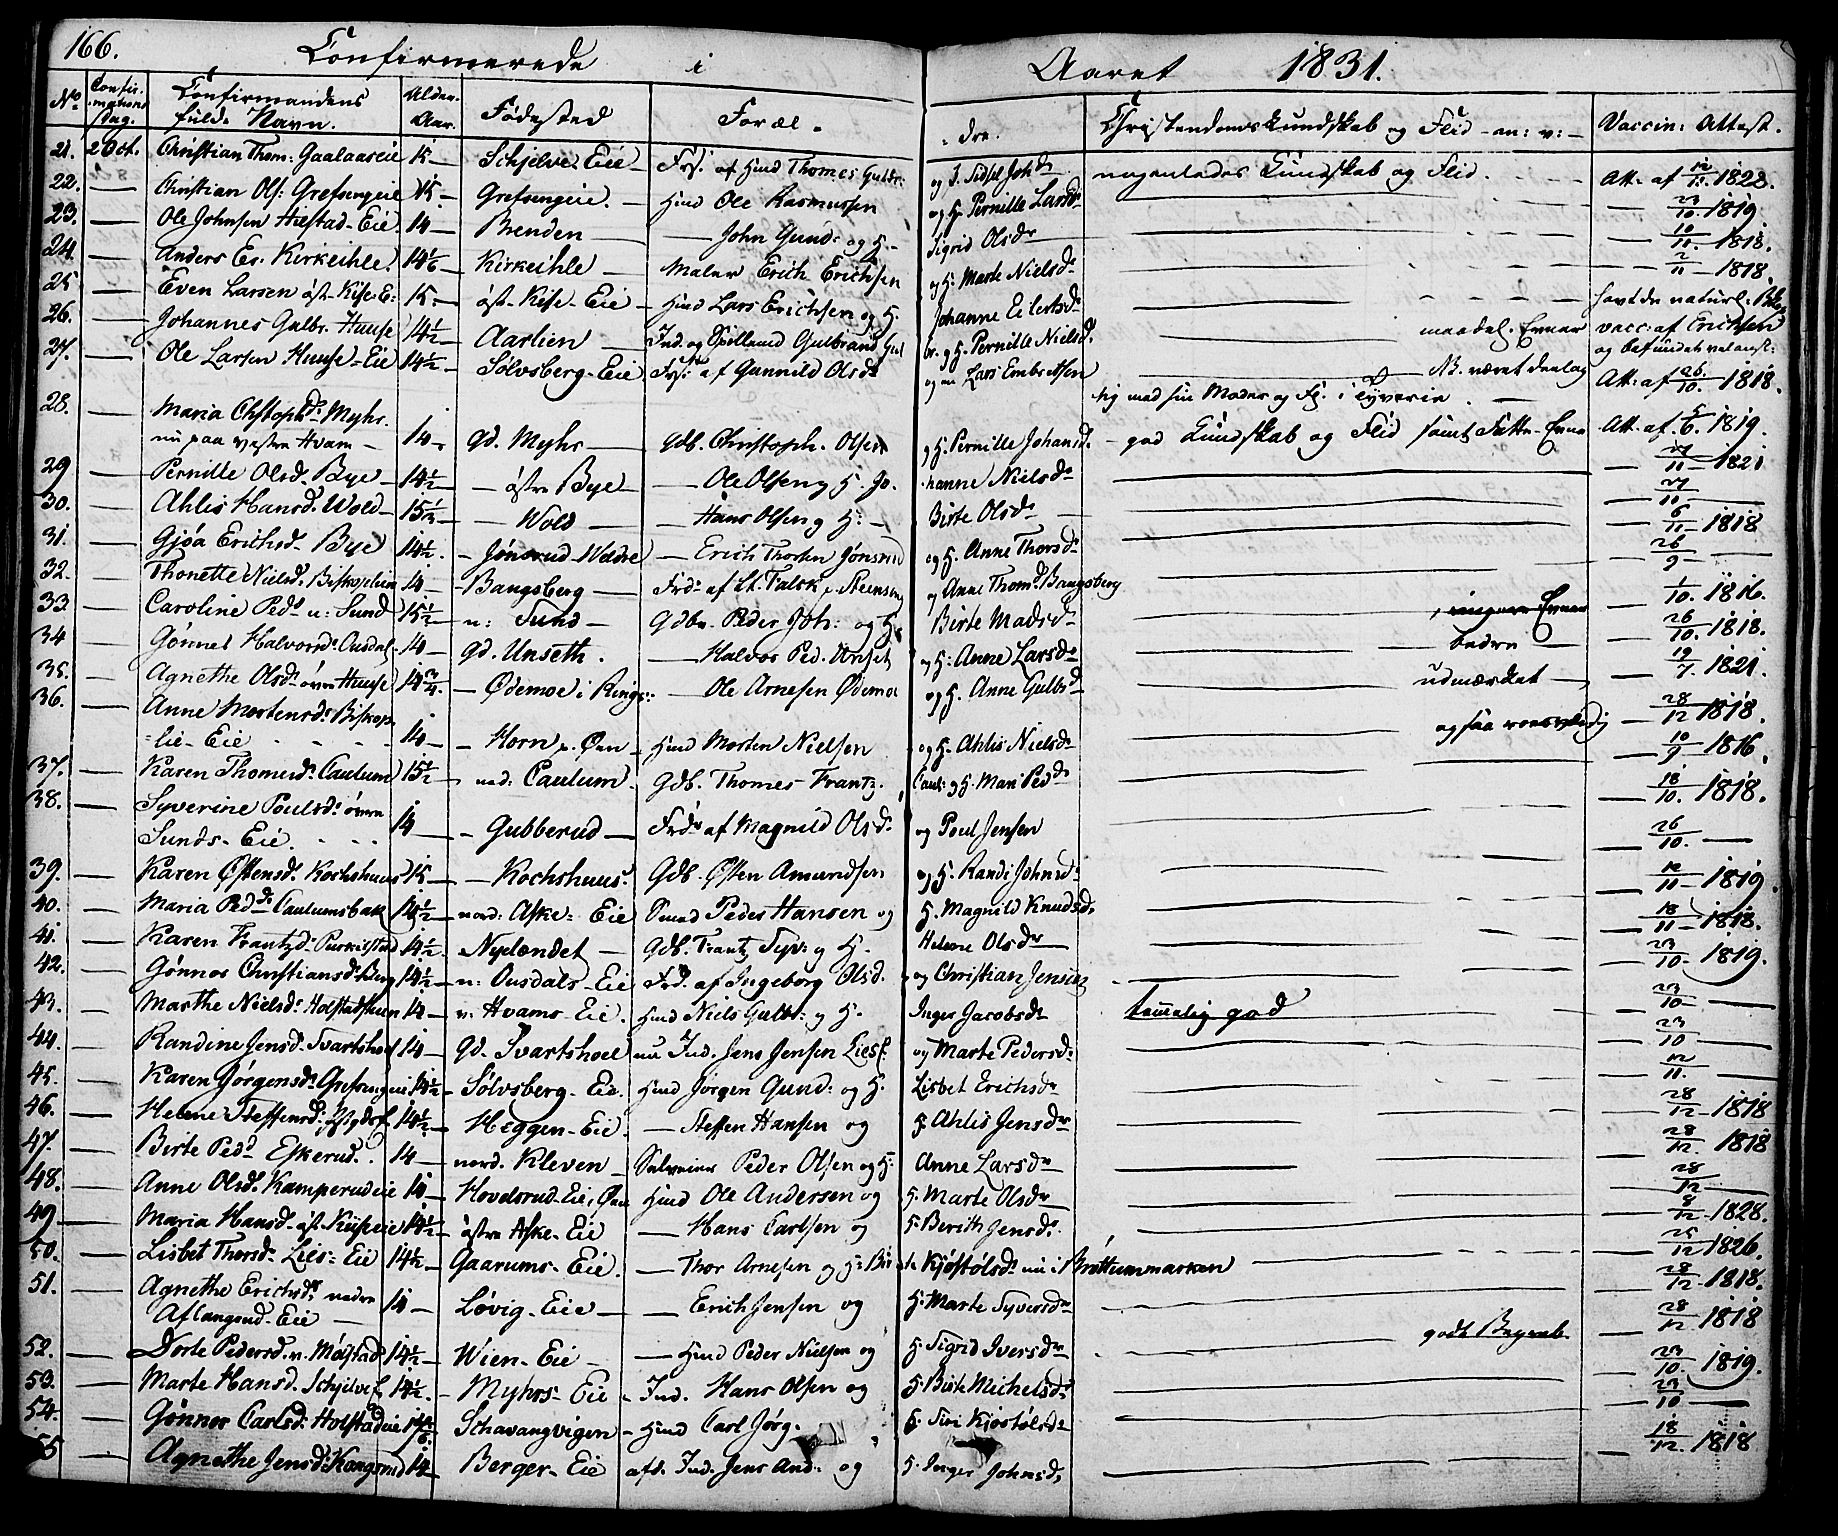 166. Confirmerede i Aaret 1831.
No. Confirmations Dag. Confirmandens fulde Navn. Alder. Aar. Fødested Foræl- dre. Christendoms Kundskab og Flid -an: v:- Vaccin: Attest.
21. 2 Oct. Christian Thom: Gaalaaseie 15 - Schjelve Eie - Frs. af Hmd Thomes Guldr. og J. Sidsel Johsdr nogenledes Kundskab og Flid - - Att: af 12/11 1828.
22. — Christian Ols: Grefsengeie 15 - Grefsengeie. - Hmd Ole Rasmussen og H. Pernille Larsdr — 23/10. 1819.
23. — Ole Johnsen Halstad-Eie. 14 - Brenden — — John Gund: og H - Sigrid Olsdr — 10/11. 1818.
24. — Anders Er. Kirkeihle. 14 1/6 - Kirkeihle - Maler Erich Erichsen og H. Marte Nielsdr. — 2/11 - 1818.
25 — Even Larsen øst-Kise-E: 15. - øst-Kise-Eie - Hmd Lars Erichsen og H. Johanne Eilertsdr — havt de naturl:
26. — Johannes Gulbr. Huuse 14 1/2 - Aarlien — Ind. og Spillemd Gulbrand Gul br. og H. Pernille Nielsd. — maadel. Evner vacc: af Erichsen
27. — Ole Larsen Huuse-Eie 14 1/2 - Sølvsberg-Eie Frs: af Gunnild Olsdr og m Lars Embretsen — NB. været deelag og befundet velanst:
tig med sin Moder og Fl. i Tyverie. — Att: af 26/10. 1818.
28. — Maria Chstophd. Myhr.
nu paa vestre Hvam - 14 - gd. Myhr — Gdb. Christoph. Olsen og H. Pernille Johansd. - god Kundskab og Flid samt Evne Att: af 5/6. 1819.
29 — Pernille Olsd. Bye - 14 1/2 - østre Bye - — Ole Olsen og H. Jo. hanne Nielsdr — 27/11 - 1821
30. — Ahlis Hansd. Wold - 15 1/2 - Wold — — Hans Olsen og H: - Birte Olsdr — 27/10. —
31. — Gjøa Erichsd. Bye 14 1/2. - Jønsrud-Waldre - Erich Thorsten Jønsrud og H. Anne Thorsdr — 6/11 - 1818
32. — Thonette Nielsd. Biskoplien 14 - Bangsberg — Frd. af Lt. Falck, Steensen og Anne Thomd. Bangsberg — 26/9 —
33. — Caroline Pedd n: Sund 15 1/2 - n: Sund - Gdbr. Peder Joh: og H. Birte Madsdr - — ringere Evner — 1/10. 1816.
34 — Gønner Halvorsd. Ousdal 14 - gd. Unseth. — Halvor Ped. Unset og H: Anne Larsdr — bedre — 26/10. 1818.
35. — Agnethe Olsd. øvre Huuse 14 3/4. - Ødemoe i Rings: - Ole Arnesen Ødemoe og H. Anne Gulbd — udmærket — 19/7. 1821.
36. — Anne Mortensd. Biskop
lie-Eie 14 - - Horn, v. Øen - Hmd Morten Nielsen og H. Ahlis Nielsdr — 28/12 1818.
37. — Karen Thomesd. Caulum 15 1/2 - ned: Caulum. Gdb. Thomes Frantz. Caul: og H. Mari Pedd — 10/9 1816.
38. — Syverine Poulsd. øvre
Sunds-Eie. 14 - - Gubberud — Frdr af Magnild Olsd. og Poul Jensen — 18/10. 1818.
39. — Karen Østensd. Kochshuus 15 - - Kochshuus. Gdb. Østen Amundsen og H. Randi Johnsd. — 26/10. —
40. — Maria Pedd Caulumsbak 14 1/2 - nord: Aske-Eie Peder Hansen og H. Magnild Knudsd. — 12/11 - 1819.
41. — Karen Frantzd. Purkilstad 14 1/2. - Nylændet — Gdb. Frantz Syv: og H. - Helene Olsdr — 18/11 - 1818.
42. — Gønner Christiansd. Berg 14 1/2 - n: Ousdals-Eie Frd. af Ingeborg Olsd. og Christian Jensen — 23/10. 1819.
43. — Marthe Nielsd. Holstadskuen 14 - v: Hvams-Eie. Hmd Niels Gulbr: og H. Inger Jacobsdr temmelig god — 23/10 —
44. — Randine Jensd. Svartshoel 14 - gd. Svartshoel nu Ind. Jens Jensen Lies og Marte Pedersd. — 23/10 —
45. — Karen Jørgensd. Grefsengeie 14 1/2 - Sølvsberg-Eie. Hmd Jørgen Gund: og H. Lisbet Erichsdr — 12/11. —
46. — Helene Steffensd. 14 1/2. - Heggen-Eie - Steffen Hansen og H. Ahlis Jensdr — 28/12 - 1818
47. — Birte Pedd Eskerud. 14 - nord. Kleven - Peder Olsen og H: Anne Larsdr — 28/12. 1818
48. — Anne Olsd. Kamperudeie 14 - Hovelsrud-Eie, Øen Hmd Ole Andersen og H. Marte Olsdr — 28/12 —
49 — Maria Hansd. øst Kiiseeie 14 1/2 - østre Aske-Eie — Hans Carlsen og H. Berith Jensdr. — 8/12 - 1828.
50. — Lisbet Thorsd. Lies-Eie 14 1/2 - Gaarums-Eie. — Thor Arnesen og H: Bir te Kjøstølsd. nu i Brøttummarken — 25/12 1826.
51. — Agnethe Erichsdr nedre
Aflangrud-Eie — 14 - Løvig-Eie — Erich Jensen og H. Marte Syversdr — 28/12 - 1818.
52. — Dorte Pedersd. v. Møistad 14 1/2 - Wien-Eie — Hmd Peder Nielsen og H. Sigrid Iversdr — gode Begreb — 28/12. 1818
53. — Marte Hansd. Schjelve 14 1/2. - Myhrs-Eie - Ind. Hans Olsen og H. Birte Michelsdr — 23/10. 1819.
54. — Gønner Carlsd. Holstadeie 14 - Schavangvigen - Hmd Carl Jørg. H. Siri Kjøstølsdr — 23/10 —
55 — Agnethe Jensd. Kangsrud 14 - Berger-Eie afd. Ind. Jens And: og H. Inger Johnsd. — 18/12. 1818